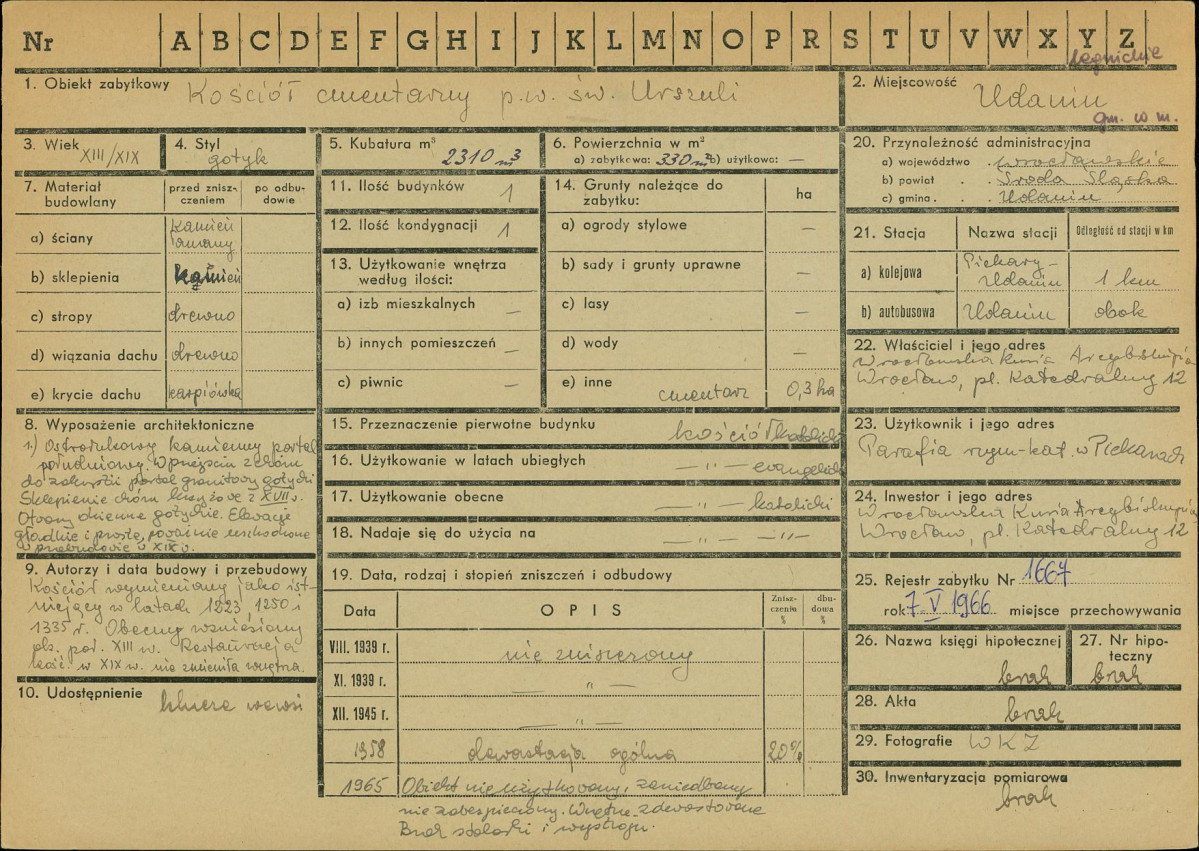 Nr A B C D E F G H I J K L M N O P R S T U V W X Y Z
legnickie
1. Obiekt zabytkowy Kościół cmentarny p.w. św. Urszuli
2. Miejscowość Udanin
gm. w m.
3. Wiek XIII/XIX
4. Styl gotyk
5. Kubatura m³ 2310 m³
6. Powierzchnia w m²
a) zabytkowa: 330 m² b) użytkowa: —
7. Materiał budowlany
przed zniszczeniem
po odbudowie
a) ściany Kamień łamany
b) sklepienia kamień
c) stropy drewno
d) wiązania dachu drewno
e) krycie dachu karpiówka
8. Wyposażenie architektoniczne
1.) Ostrołukowy kamienny portal
południowy. W przejściu z chóru
do zakrystii portal granitowy gotycki
Sklepienie chóru krzyżowe z XVII w.
Otwory okienne gotyckie. Elewacje
gładkie i proste, poważnie uszkodzone
w przebudowie w XIX w.
9. Autorzy i data budowy i przebudowy
Kościół wymieniony jako ist-
niejący w latach 1223, 1250 i
1335 r. Obecny wzniesiony
pół. XIII w. Restauracja
kość. w XIX w. nie zmieniła wnętrza.
10. Udostępnienie
11. Ilość budynków 1
12. Ilość kondygnacji 1
13. Użytkowanie wnętrza według ilości:
a) izb mieszkalnych —
b) innych pomieszczeń —
c) piwnic —
14. Grunty należące do zabytku:
ha
a) ogrody stylowe —
b) sady i grunty uprawne —
c) lasy —
d) wody —
e) inne cmentarz 0,3 ha
15. Przeznaczenie pierwotne budynku kościół katolicki
16. Użytkowanie w latach ubiegłych — " — evangelicki
17. Użytkowanie obecne — " — katolicki
18. Nadaje się do użycia na — " — " —
19. Data, rodzaj i stopień zniszczeń i odbudowy
Data
OPIS
Zniszczeniu %
dbudowa %
VIII. 1939 r. nie zniszczony
XI. 1939 r. — " —
XII. 1945 r. — " —
1958 dewastacja ogólna 20%
1965 Obiekt nie użytkowany, zaniedbany
nie zabezpieczony. Wnętrze zdewastowane
Brak stolarki i wystroju.
20. Przynależność administracyjna
a) województwo wrocławskie
b) powiat Środa Śląska
c) gmina Udanin
21. Stacja
Nazwa stacji
Odległość od stacji w km
a) kolejowa Piekary-Udanin 1 km
b) autobusowa Udanin obok
22. Właściciel i jego adres
Wrocławska Kuria Arcybiskupia
Wrocław, pl. Katedralny 12
23. Użytkownik i jego adres
Parafia rzym-kat. w Piekarach
24. Inwestor i jego adres
Wrocławska Kuria Arcybiskupia
Wrocław, pl. Katedralny 12
25. Rejestr zabytku Nr 1667
rok 7 V 1966 miejsce przechowywania
26. Nazwa księgi hipotecznej
brak
27. Nr hipoteczny
brak
28. Akta
brak
29. Fotografie WKZ
30. Inwentaryzacja pomiarowa
brak